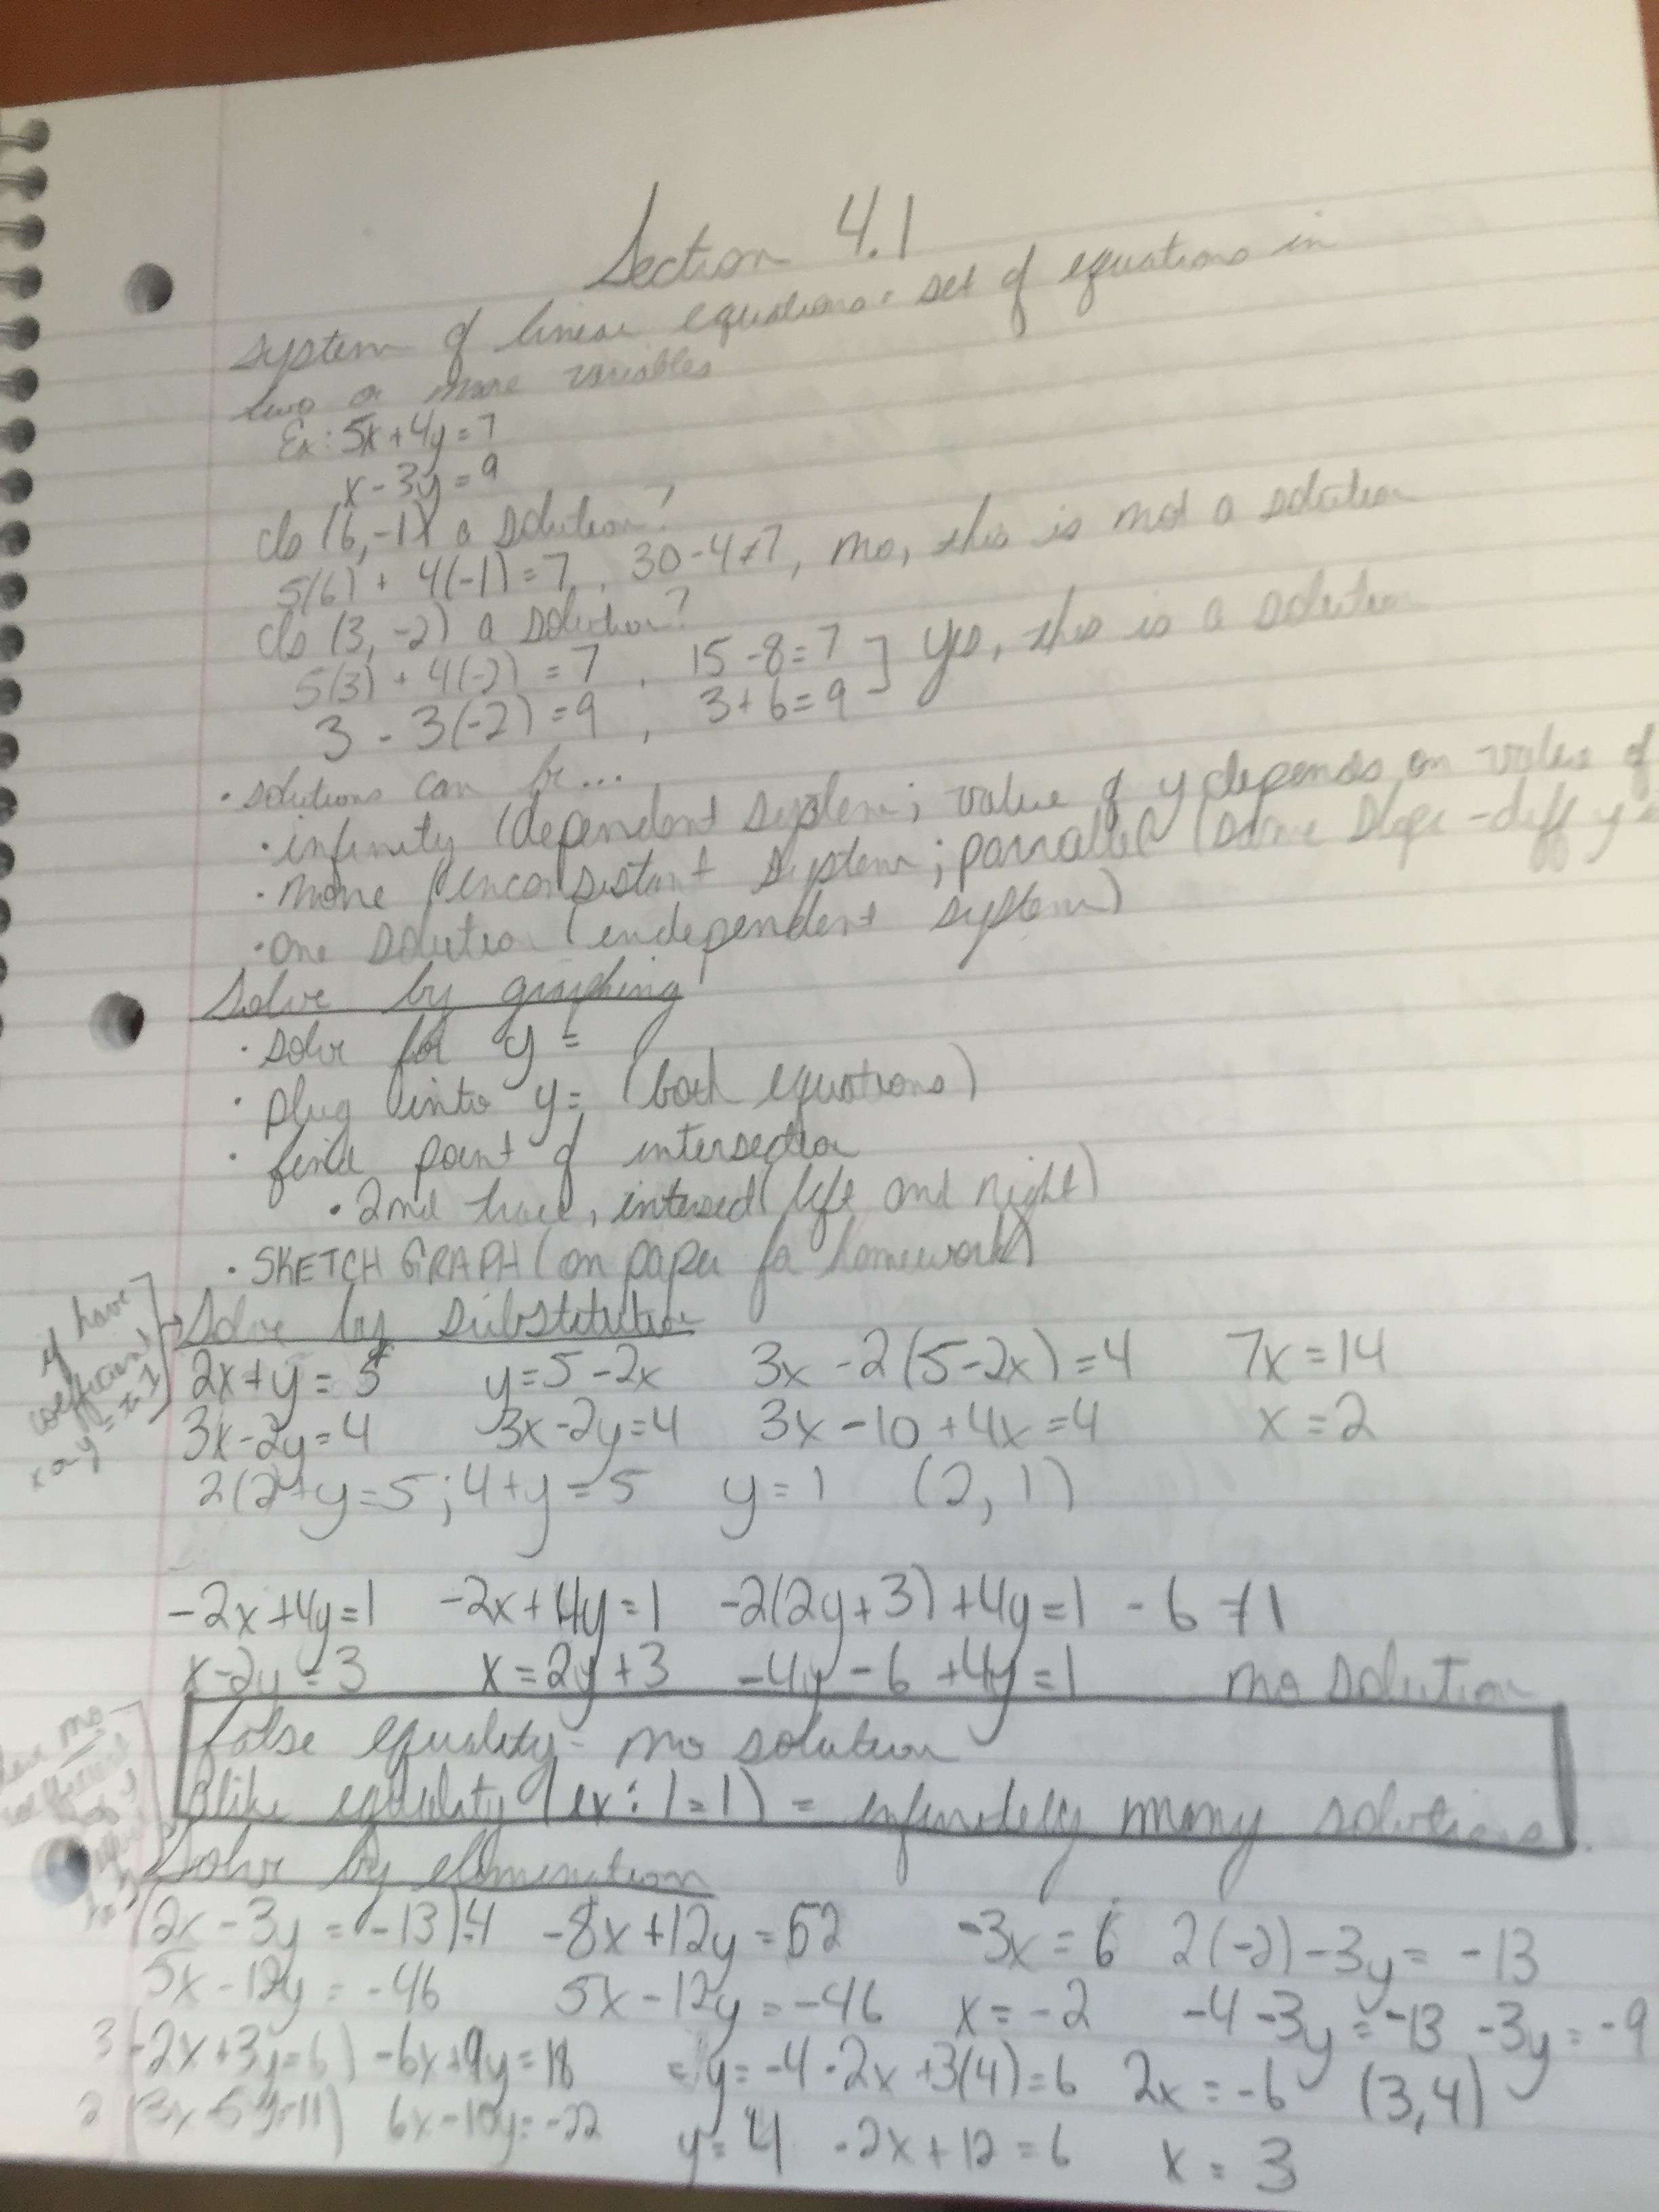 Section 4.1
System of linear equations: set of equations in
two or more variables
Ex: 5x+4y=7
x-3y=9
Is (6,-1) a solution?
5(6) + 4(-1)=7, 30-4≠7, no, this is not a solution
Is (3, -2) a solution?
5(3) + 4(-2) = 7 , 15-8=7 ] yes, this is a solution
3 - 3(-2)=9 , 3+6=9
• solutions can be...
• infinity (dependent system; value of y depends on value of
• none (inconsistant system; parrallel (same slope - diff y
• one solution (independent system)
Solve by graphing
• solve for y =
• plug into y= (both equations)
• find point of intersection
• 2nd trace, intersect (left and right)
• SKETCH GRAPH (on paper for homework)
if have
coefficient
x or y = ± 1
→ Solve by substitution
2x+y=5 y=5-2x 3x-2(5-2x)=4 7x=14
3x-2y=4 3x-2y=4 3x-10+4x=4 x=2
2(2)+y=5; 4+y=5 y=1 (2,1)
-2x+4y=1 -2x+4y=1 -2(2y+3)+4y=1 -6≠1
x-2y=3 x=2y+3 -4y-6+4y=1 no solution
no
coefficient
false equality = no solution
alike equality (ex: 1=1) = infinitely many solutions.
Solve by elimination
(2x-3y=-13)4 -8x+12y=52 -3x=6 2(-2)-3y=-13
5x-12y=-46 5x-12y=-46 x=-2 -4-3y=-13 -3y=-9
3(-2x+3y=6) -6x+9y=18 -y=-4 -2x+3(4)=6 2x=-6 (3,4)
2(3x-5y=-11) 6x-10y=-22 y=4 -2x+12=6 x=3